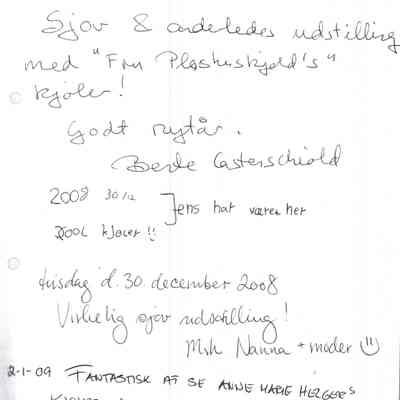 Sjov & anderledes udstilling
med "Fru Plashuskjold's"
kjoler!
Godt nytår.
Bente Castenschiold
2008 30/12
Jens har været her
COOL kjoler!!
tirsdag d. 30. december 2008
Virkelig sjov udstilling!
Mvh Nanna + moder
2-1-09 FANTASTISK AT SE ANNE MARIE HELGER'S